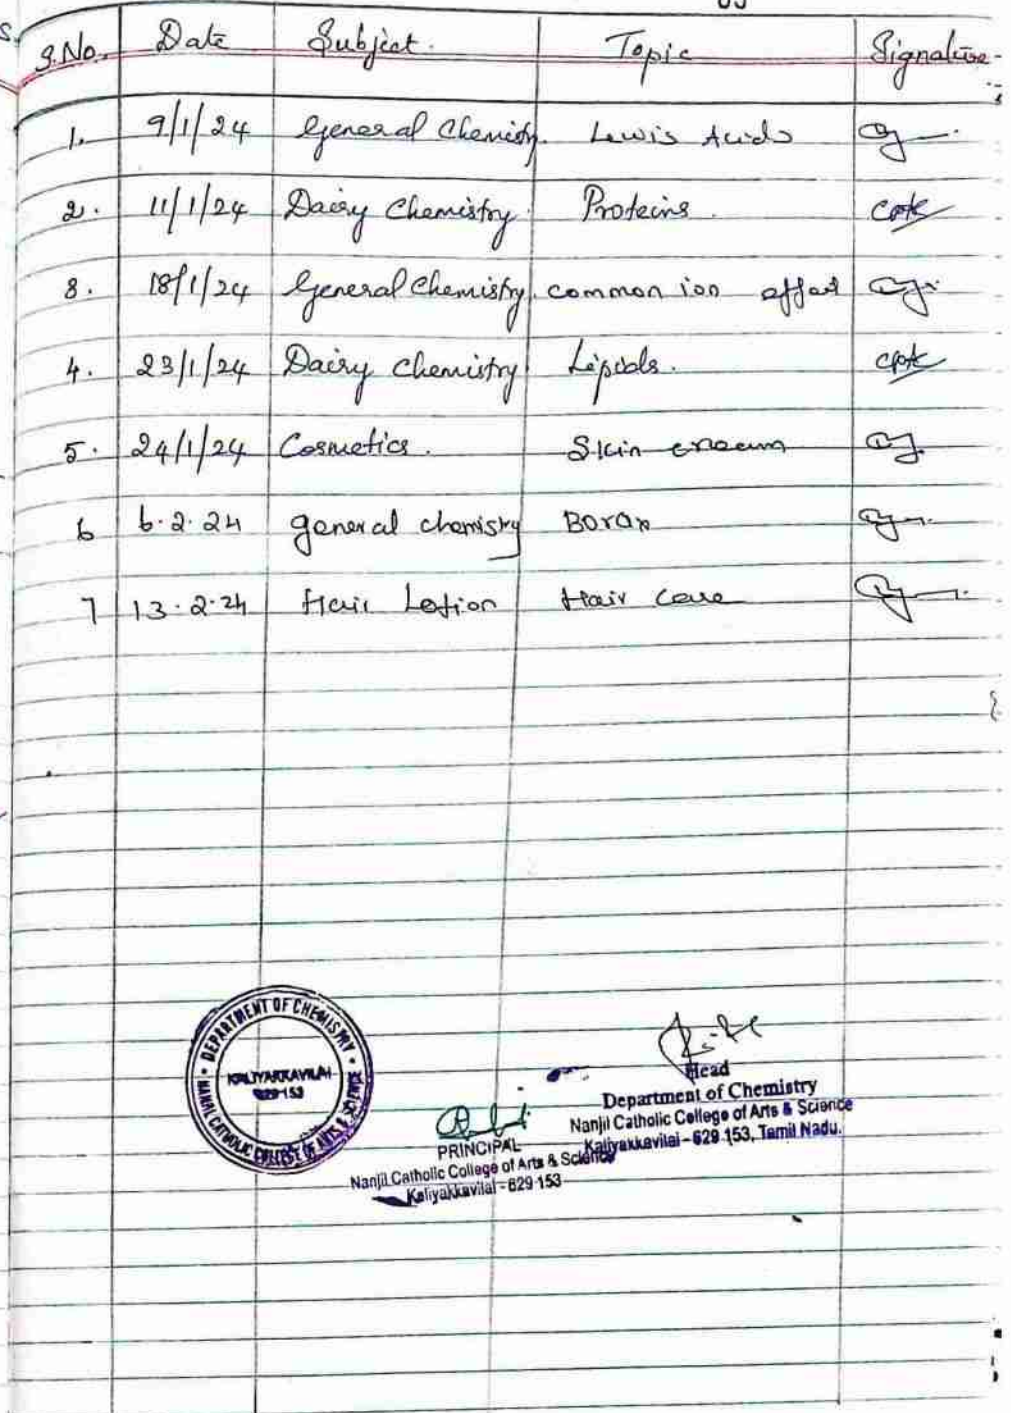 S.No. Date Subject. Topic Signature
1. 9/1/24 General Chemistry. Lewis Acids
2. 11/1/24 Dairy Chemistry. Proteins.
3. 18/1/24 General Chemistry. common ion effect
4. 23/1/24 Dairy Chemistry Lipids.
5. 24/1/24 Cosmetics. Skin cream
6 6.2.24 general chemistry Borax
7 13.2.24 Hair Lotion Hair Care
DEPARTMENT OF CHEMISTRY
KALIYAKKAVILAI
629 153
NANJIL CATHOLIC COLLEGE OF ARTS & SCIENCE
Head
Department of Chemistry
Nanjil Catholic College of Arts & Science
Kaliyakkavilai - 629 153, Tamil Nadu.
PRINCIPAL
Nanjil Catholic College of Arts & Science
Kaliyakkavilai - 629 153